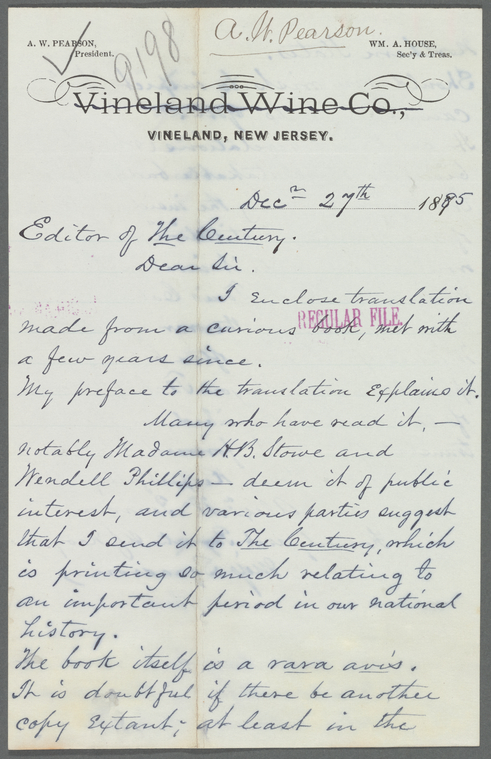 A. W. Pearson.
9198
A. W. PEARSON,
President.
WM. A. HOUSE,
Sec'y & Treas.
Vineland Wine Co.,
VINELAND, NEW JERSEY.
Decr 27th 1885
Editor of The Century.
Dear Sir.
I Enclose translation
REGULAR FILE.
made from a curious book, met with
a few years since.
My preface to the translation Explains it.
Many who have read it, —
notably Madame H. B. Stowe and
Wendell Phillips — deem it of public
interest, and various parties suggest
that I send it to The Century, which
is printing so much relating to
an important period in our national
history.
The book itself is a rara avis.
It is doubtful if there be another
copy Extant; at least in the